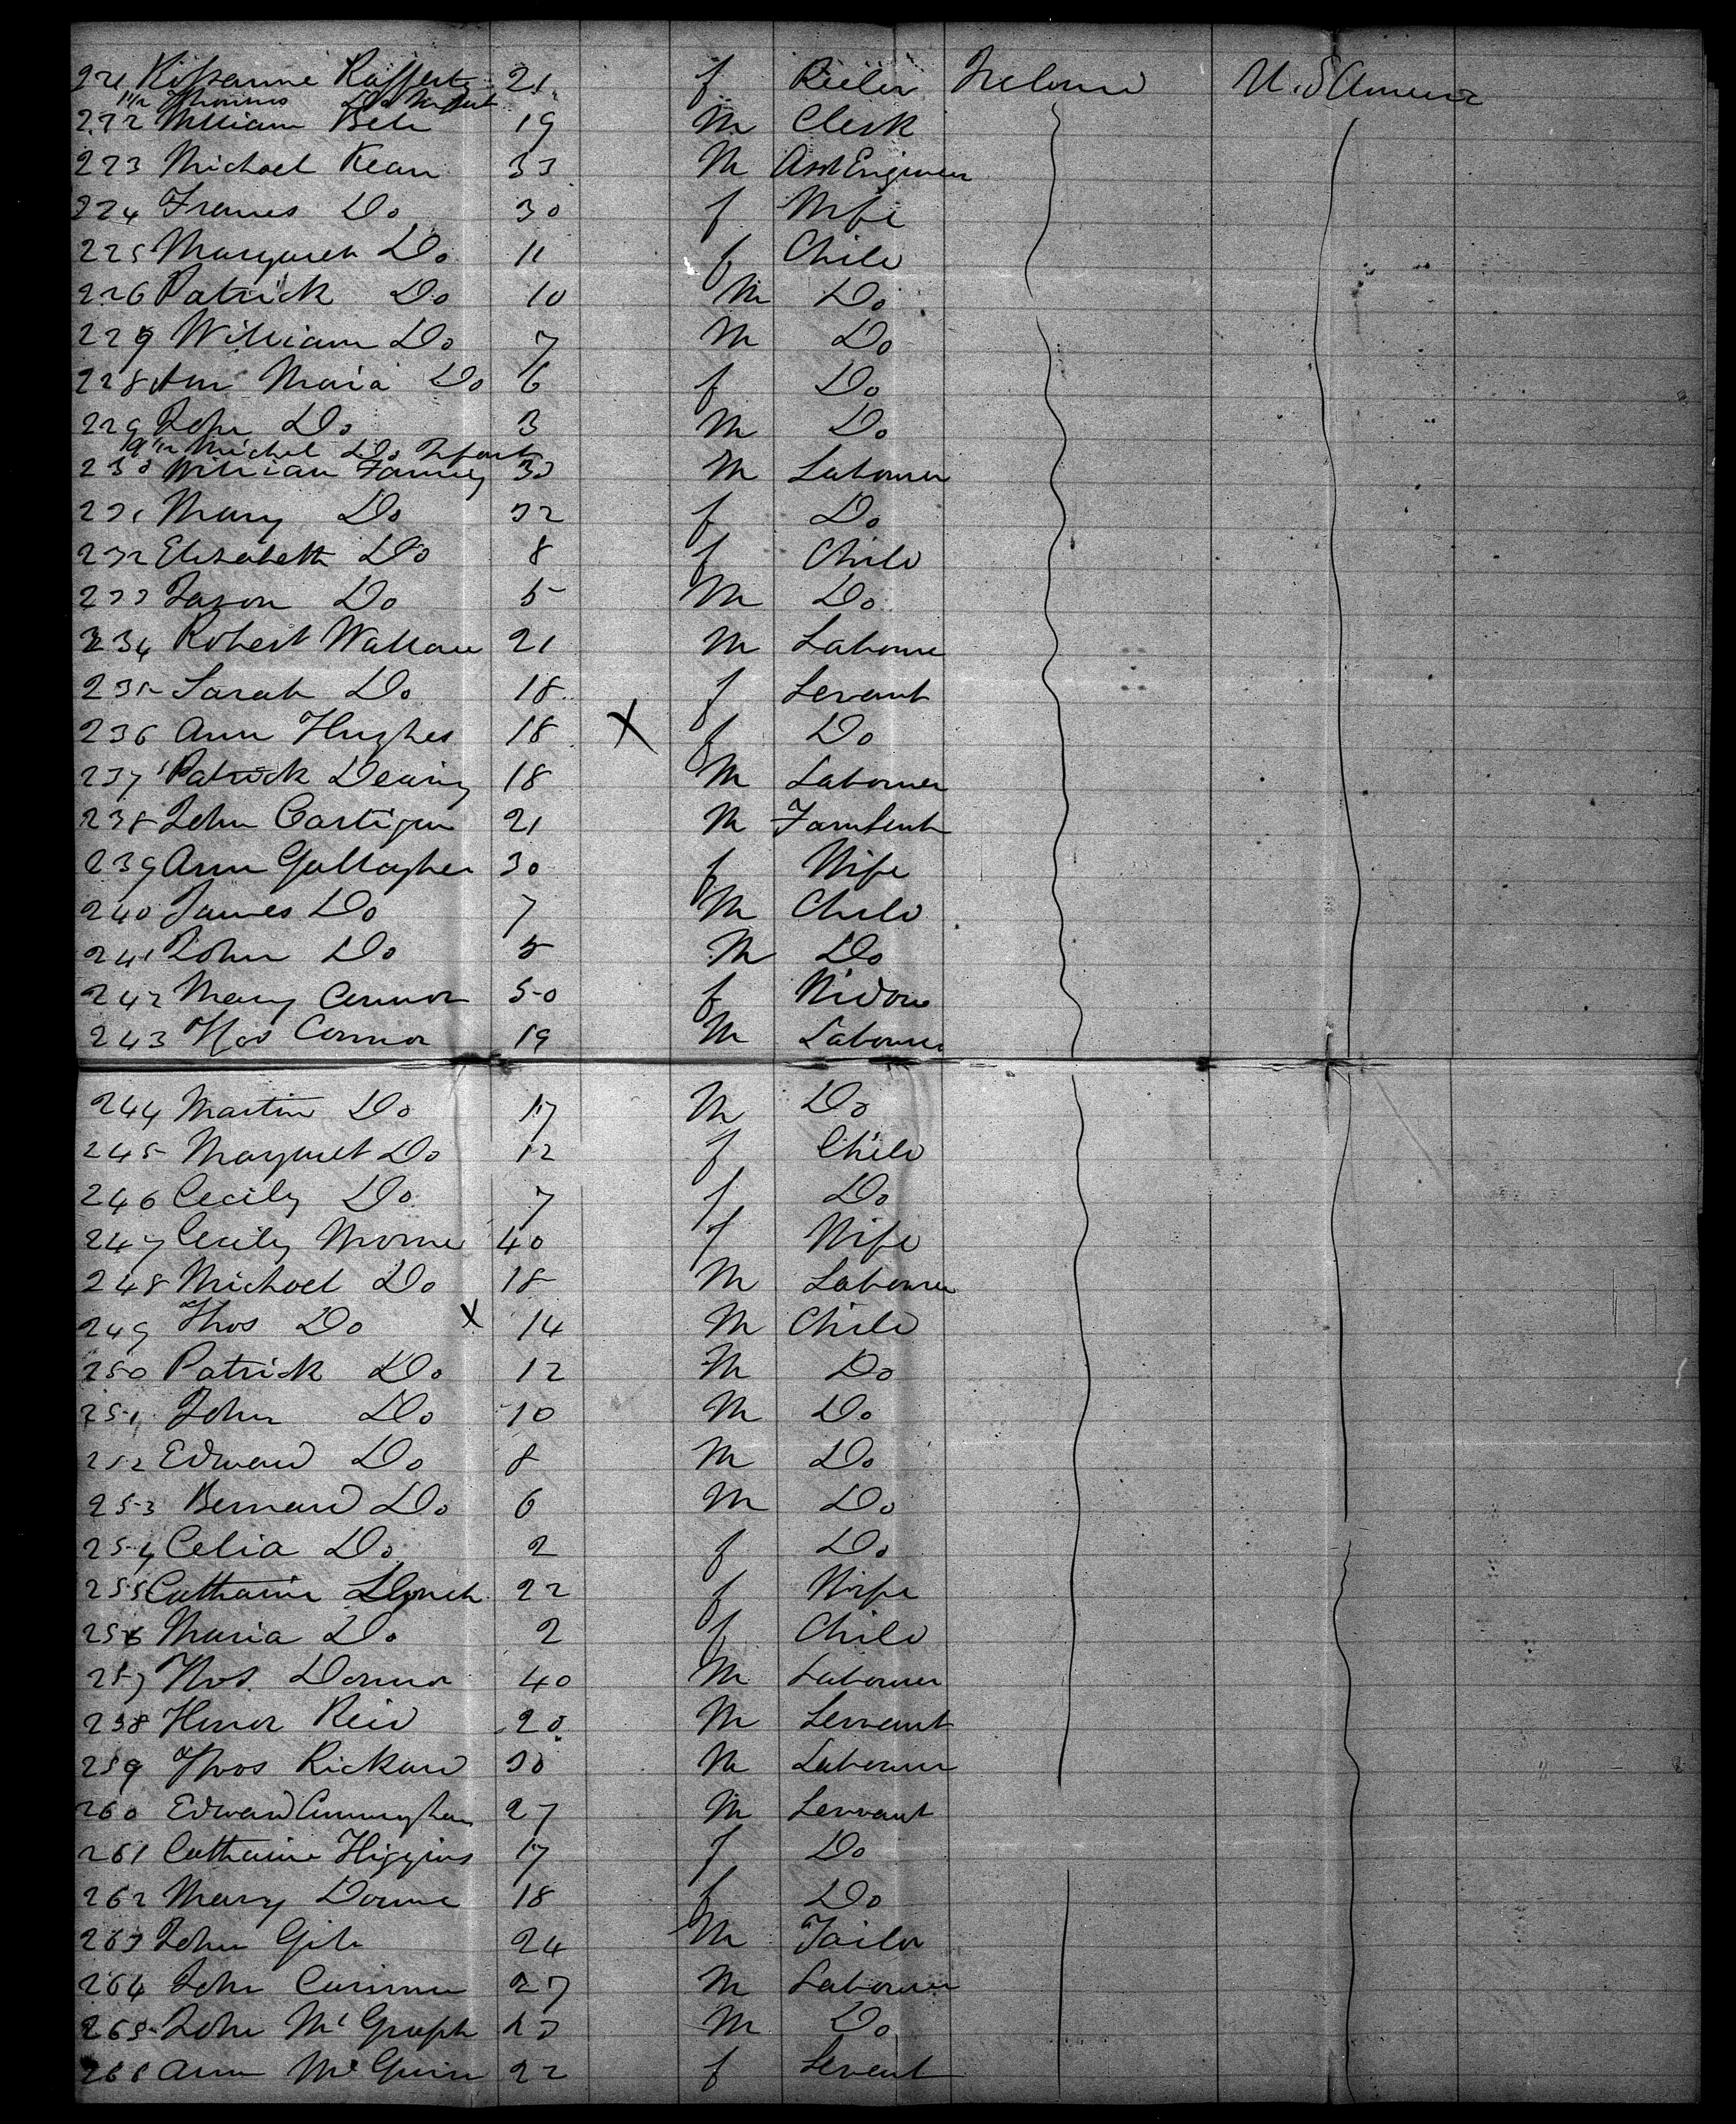 221 Rosanne Rafferty 21 f Reeler Ireland U.S America
11/12 Thomas Do Infant
222 William Bell 19 M Clerk
223 Michael Kean 33 M Asst Engineer
224 Frances Do 30 f Wife
225 Margaret Do 11 f Child
226 Patrick Do 10 M Do
227 William Do 7 M Do
228 Ann Maria Do 6 f Do
229 John Do 3 M Do
Michel Do Infant
230 William 30 M Labourer
231 Mary Do 32 f Do
232 Elizabeth Do 8 f Child
233 Do 5 M Do
234 Robert Wallace 21 M Labourer
235 Sarah Do 18 f Servant
236 Ann Hughes 18 X f Do
237 Patrick 18 M Labourer
238 John Costigan 21 M
239 Ann Gallagher 30 f Wife
240 James Do 7 M Child
241 John Do 5 M Do
242 Mary Connor 50 f Widow
243 Thos Connor 19 M Labourer
244 Martin Do 17 M Do
245 Margaret Do 12 f Child
246 Cecily Do 7 f Do
247 Cecily 40 f Wife
248 Michael Do 18 M Labourer
249 Thos Do X 14 M Child
250 Patrick Do 12 M Do
251 John Do 10 M Do
252 Edward Do 8 M Do
253 Bernard Do 6 M Do
254 Celia Do 2 f Do
255 Catharine Lynch 22 f Wife
256 Maria Do 2 f Child
257 Thos. 40 M Labourer
258 Honor Reid 20 M Servant
259 Thos Rickard 30 M Labourer
260 Edward Cunningham 27 M Servant
261 Catharine Higgins 17 f Do
262 Mary 18 f Do
263 John 24 M Tailor
264 John 27 M Labourer
265 John McGrath 23 M Do
266 Ann McGuire 22 f Servant